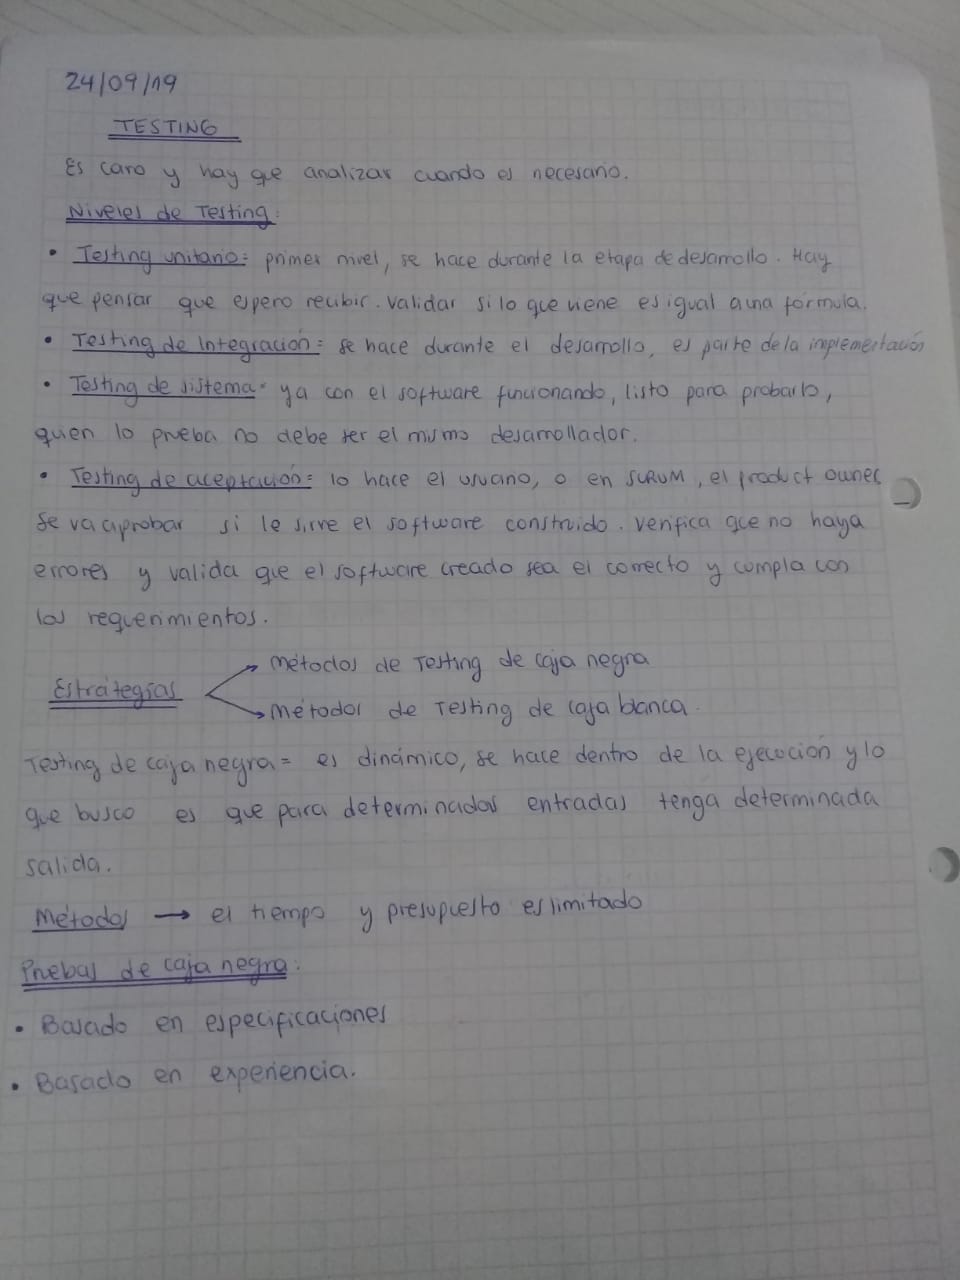 24/09/19
TESTING
Es caro y hay que analizar cuando es necesario.
Niveles de Testing:
• Testing unitario: primer nivel, se hace durante la etapa de desarrollo. Hay
que pensar que espero recibir. Validar si lo que viene es igual a una fórmula.
• Testing de Integración: se hace durante el desarrollo, es parte de la implementación
• Testing de sistema: ya con el software funcionando, listo para probarlo,
quien lo prueba no debe ser el mismo desarrollador.
• Testing de aceptación: lo hace el usuario, o en SCRUM, el product owner
Se va a probar si le sirve el software construido. Verifica que no haya
errores y valida que el software creado sea el correcto y cumpla con
los requerimientos.
Estrategias
→ Métodos de Testing de caja negra
→ Métodos de Testing de caja blanca.
Testing de caja negra= es dinámico, se hace dentro de la ejecución y lo
que busco es que para determinadas entradas tenga determinada
salida.
Métodos → el tiempo y presupuesto es limitado
Pruebas de caja negra:
• Basado en especificaciones
• Basado en experiencia.